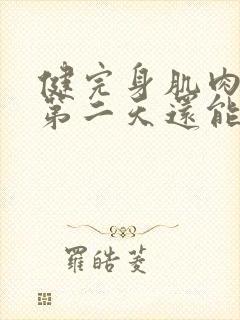 健完身肌肉
第二天還能
羅皓菱